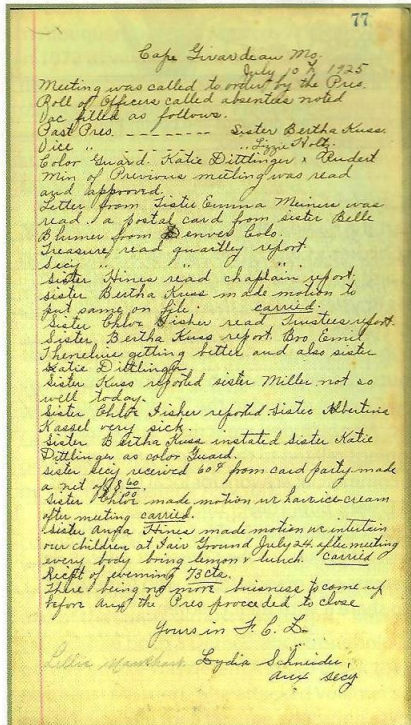 77
Cape Girardeau Mo.
July 10th 1925
Meeting was called to order by the Pres.
Roll of Officers called absenties noted
Vac filled as follows.
Past Pres. - - - - - - - - - Sister Bertha Kuss.
Vice " . " Lizzie Holtz.
Color Guard. Katie Dittlinger & Rudert
Min of Previous meeting was read
and approved.
Letter from Sister Emma Meiners was
read. a postal card from sister Belle
Blumer from Denver Colo.
Treasure read quartley report
Secy " " "
Sister Hines read chaplain report.
Sister Bertha Kuss made motion to
put same on file. carried.
Sister Chloe Fisher read Trustees report.
Sister Bertha Kuss report. Bro Emil
getting better and also sister
Katie Dittlinger
Sister Kuss reported sister Miller not so
well today.
Sister Chloe Fisher reported Sister Albertina
Kassel very sick.
Sister Bertha Kuss instated Sister Katie
Dittlinger as color Guard.
Sister Secy received 60¢ from card party made
a net of $8 60/00
Sister Chloe made motion we have ice-cream
after meeting carried.
Sister Anna Hines made motion we intertain
our children at Fair Ground July 24 after meeting
every body bring lemon & lunch. carried
Recipt of evenning 73cts.
There being no more buisness to come up
before Aux the Pres proceeded to close
Yours in F. C. L.
Lydia Schneider,
Aux Secy